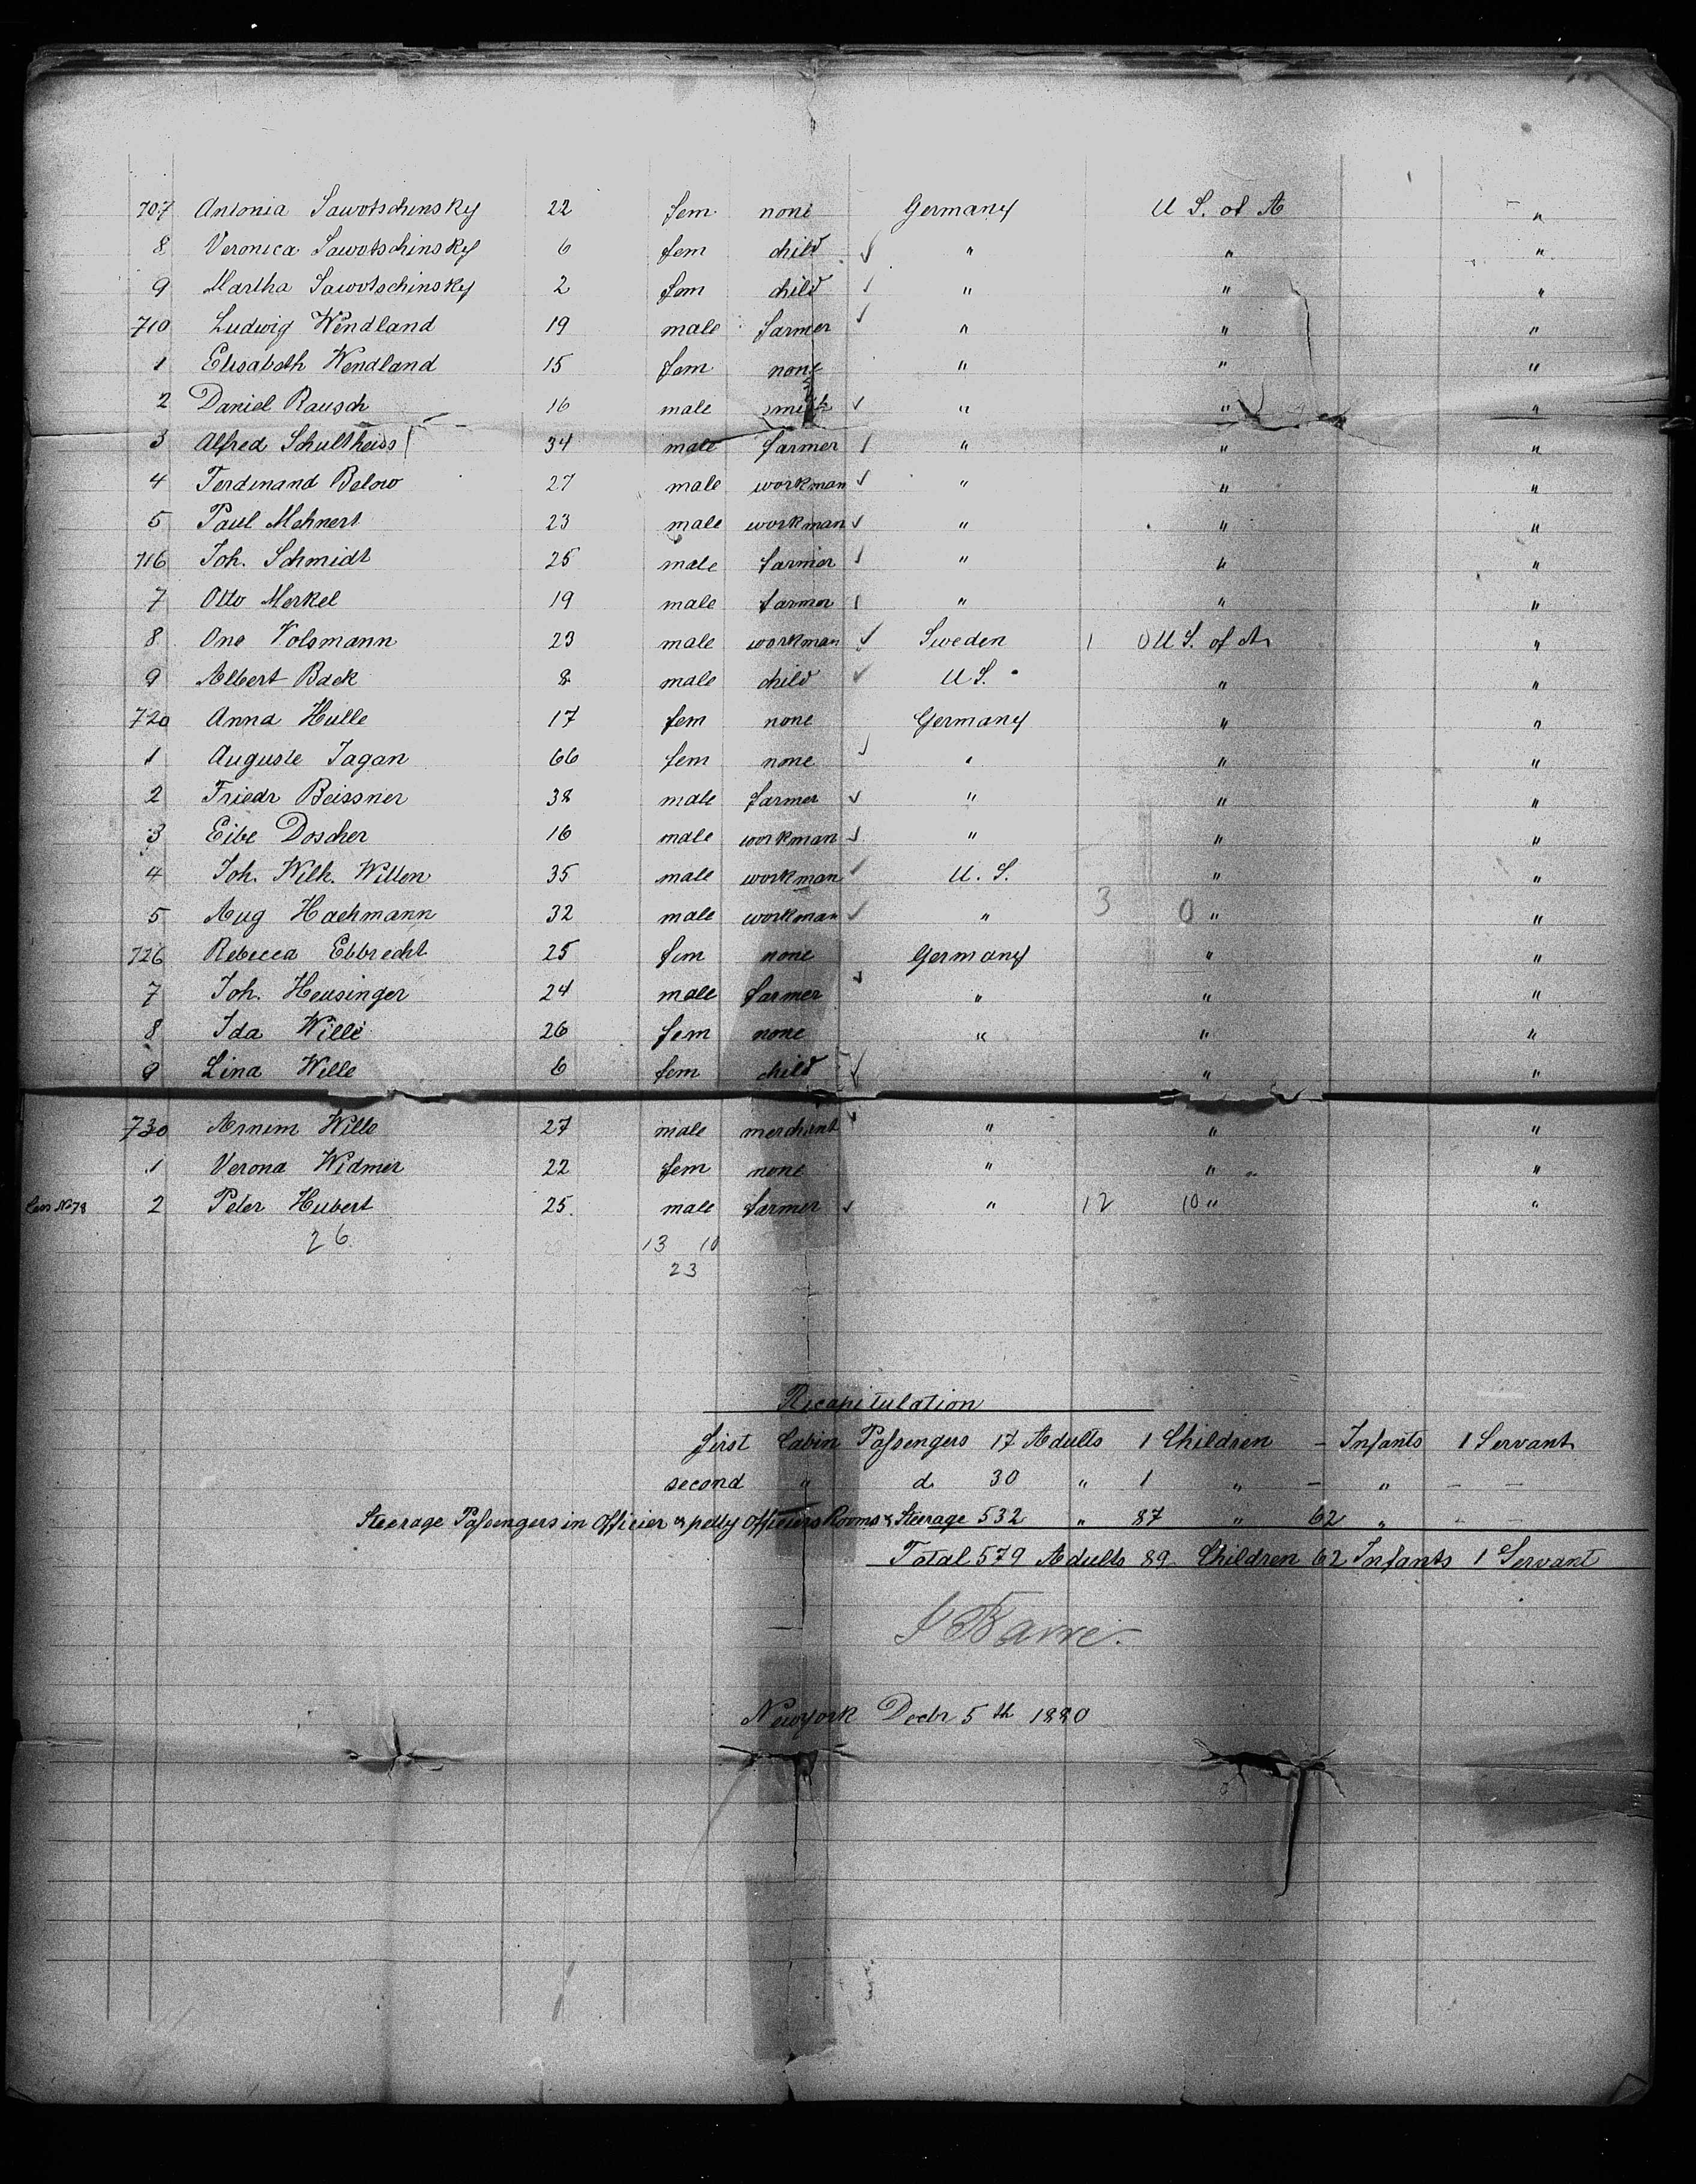 707 Antonia Sawotschinsky 22 fem none Germany U S. of A "
8 Veronica Sawotschinsky 6 fem child " " "
9 Martha Sawotschinsky 2 fem child " " "
710 Ludwig Wendland 19 male farmer " " "
1 Elisabeth Wendland 15 fem none " " "
2 Daniel Rausch 16 male smith " " "
3 Alfred Schultheiss 34 male farmer " " "
4 Ferdinand Below 27 male workman " " "
5 Paul Mehnert 23 male workman " " "
716 Joh. Schmidt 25 male farmer " " "
7 Otto Merkel 19 male farmer " " "
8 One Volsmann 23 male workman Sweden 1 0 U S. of A "
9 Albert Back 8 male child U S. " "
720 Anna Hulle 17 fem none Germany " "
1 Auguste Jagan 66 fem none " " "
2 Friedr Beissner 38 male farmer " " "
3 Eibe Doscher 16 male workman " " "
4 Joh. Wilh. Witten 35 male workman U. S. " "
5 Aug Hachmann 32 male workman " 3 0 " "
726 Rebecca Ebbrecht 25 fem none Germany " "
7 Joh. Heusinger 24 male farmer " " "
8 Ida Wille 26 fem none " " "
9 Lina Wille 6 fem child " "
730 Armim Wille 27 male merchant " " "
1 Verona Widmer 22 fem none " " "
2 Peter Hubert 25. male farmer " 12 10 " "
26 13 10
23
Recapitulation
first Cabin Passengers 17 Adults 1 Children - Infants 1 Servant
second " d 30 " 1 " - " - -
Steerage Passengers in Officier & petty Officiers Rooms & Steerage 532 " 87 " 62 " - -
Total 579 Adults 89 Children 62 Infants 1 Servant
Barre.
Newyork Decbr 5th 1880